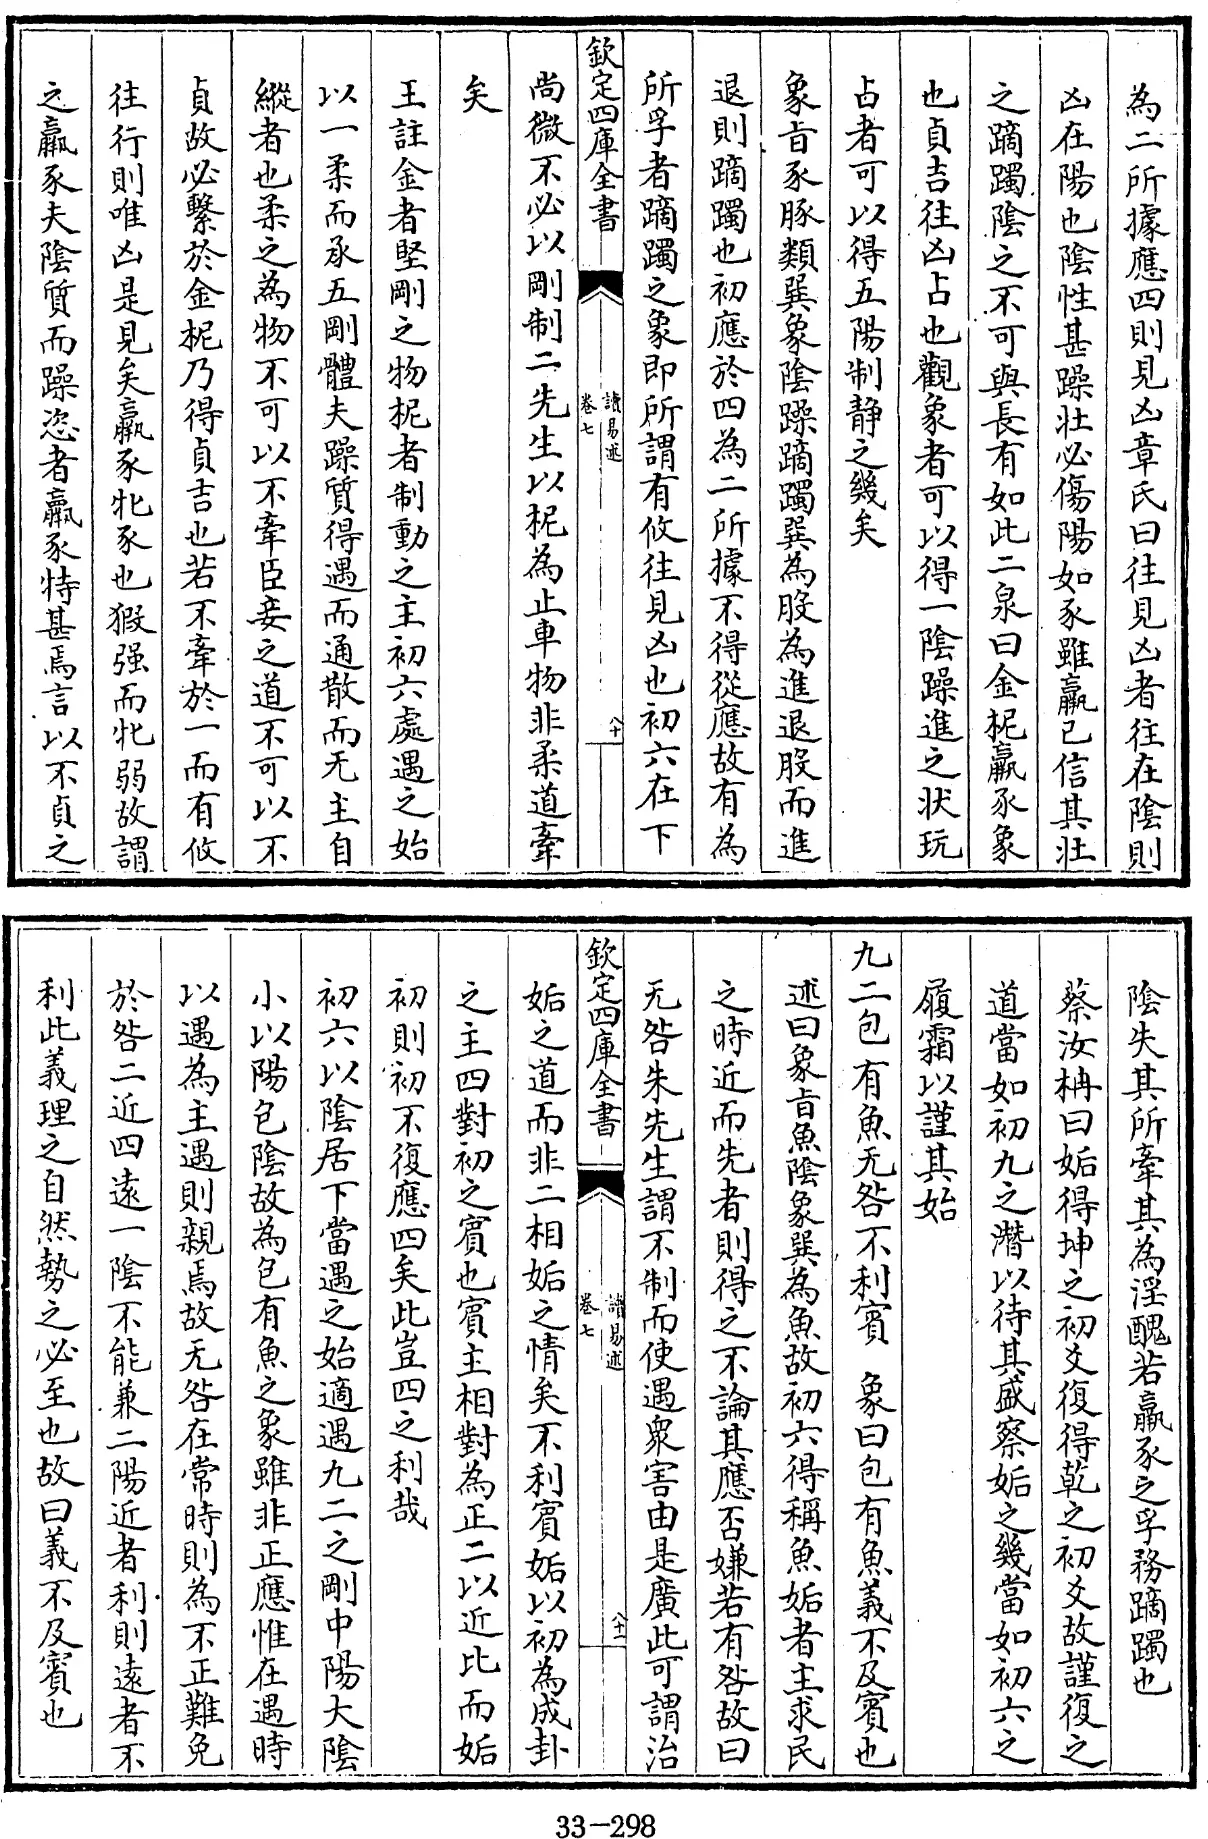 為二所據應四則見凶章氏曰往見凶者往在陰則
凶在陽也陰性甚躁壯必傷陽如豕雖羸已信其壯
之蹢躅陰之不可與長有如此二泉曰金柅羸豕象
也貞吉往凶占也觀象者可以得一陰躁進之狀玩
占者可以得五陽制静之幾矣
象旨豕豚類巽象陰躁蹢躅巽為股為進退股而進
退則蹢躅也初應於四為二所據不得從應故有為
所孚者蹢躅之象即所謂有攸往見凶也初六在下
欽定四庫全書
讀易述
卷七
八十
尚微不必以剛制二先生以柅為止車物非柔道牽
矣
王註金者堅剛之物柅者制動之主初六處遇之始
以一柔而承五剛體夫躁質得遇而通散而无主自
縱者也柔之為物不可以不牽臣妾之道不可以不
貞故必繫於金柅乃得貞吉也若不牽於一而有攸
往行則唯凶是見矣羸豕牝豕也猳强而牝弱故謂
之羸豕夫陰質而躁恣者羸豕特甚焉言以不貞之
陰失其所牽其為淫醜若羸豕之孚務蹢躅也
蔡汝柟曰姤得坤之初爻復得乾之初爻故謹復之
道當如初九之潛以待其盛察姤之幾當如初六之
履霜以謹其始
九二包有魚无咎不利賓 象曰包有魚義不及賓也
述曰象旨魚陰象巽為魚故初六得稱魚姤者主求民
之時近而先者則得之不論其應否嫌若有咎故曰
无咎朱先生謂不制而使遇衆害由是廣此可謂治
欽定四庫全書
讀易述
卷七
八十一
姤之道而非二相姤之情矣不利賓姤以初為成卦
之主四對初之賓也賓主相對為正二以近比而姤
初則初不復應四矣此豈四之利哉
初六以陰居下當遇之始適遇九二之剛中陽大陰
小以陽包陰故為包有魚之象雖非正應惟在遇時
以遇為主遇則親焉故无咎在常時則為不正難免
於咎二近四遠一陰不能兼二陽近者利則遠者不
利此義理之自然勢之必至也故曰義不及賓也
33-298